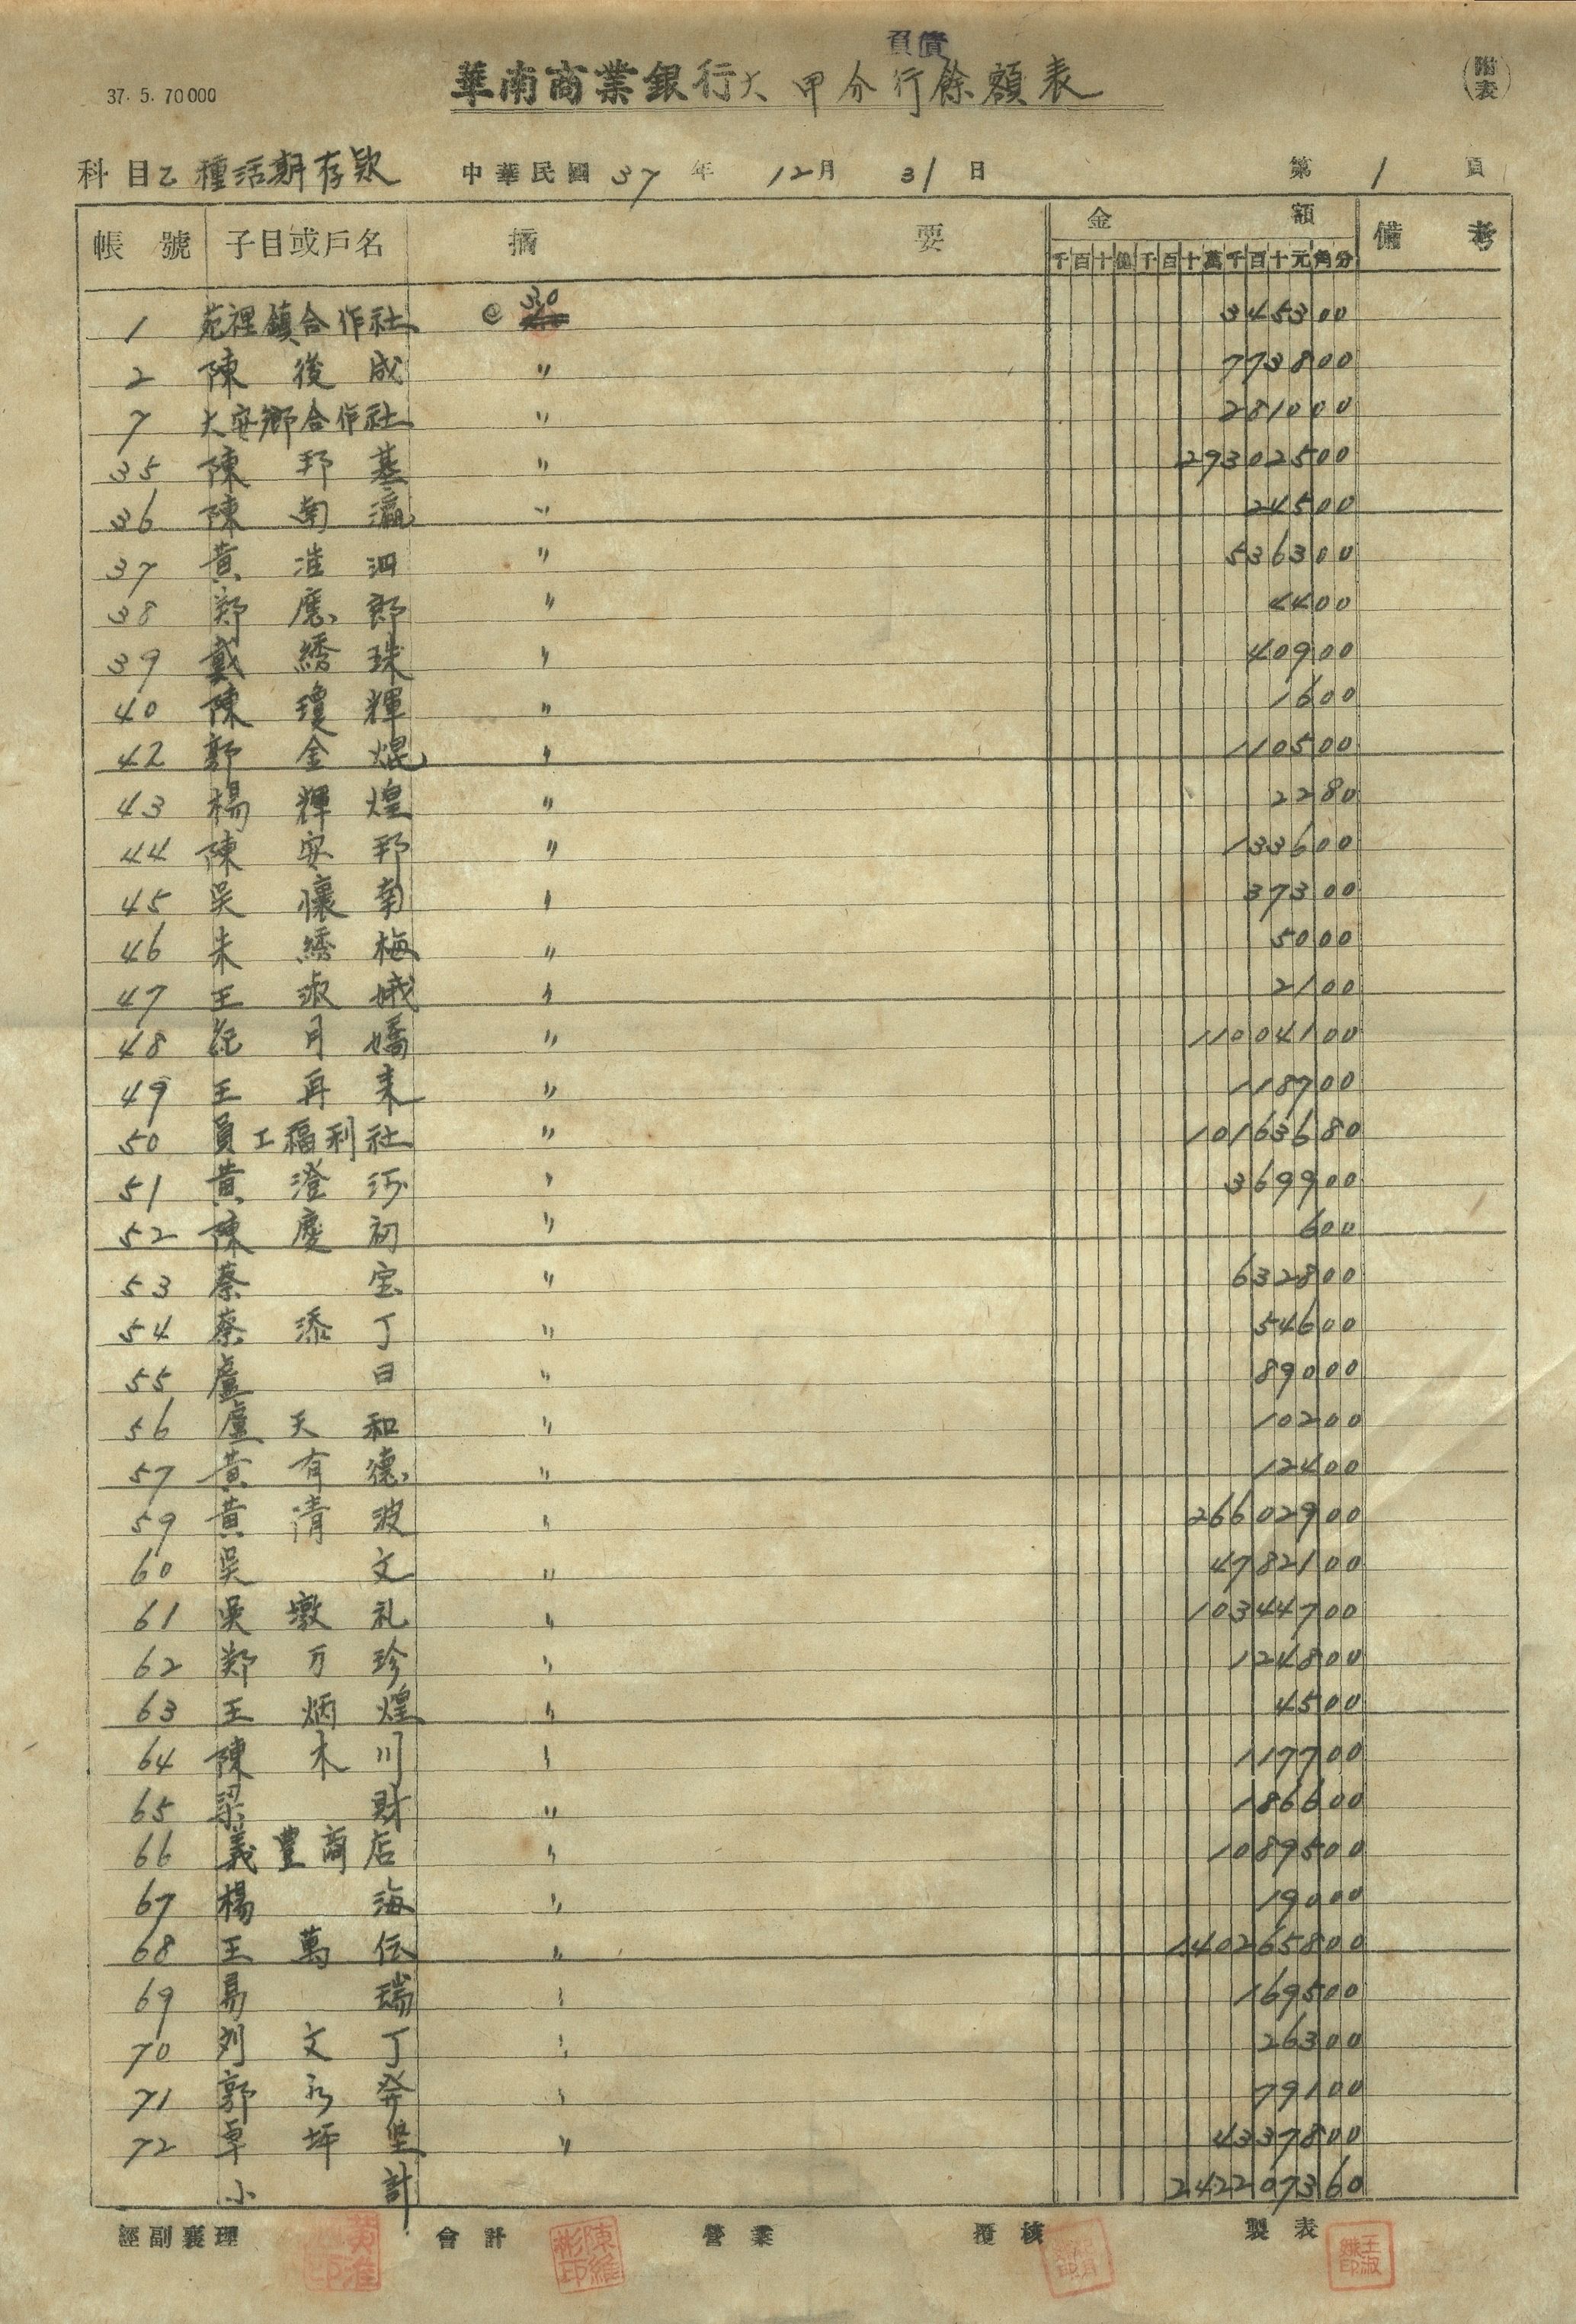 負債
37. 5. 70000
華南商業銀行大甲分行餘額表
附表
科目 乙種活期存款 中華民國 37 年 12 月 31 日 第 1 頁
帳號 子目或戶名 摘要 金額 備考
千百十億千百十萬千百十元角分
1 苑裡鎮合作社 @ 30 345300
2 陳後成 〃 773800
7 大安鄉合作社 〃 281000
35 陳邦基 〃 29302500
36 陳南瀛 〃 24500
37 黃淮泗 〃 536300
38 鄭應郎 〃 4400
39 戴繡珠 〃 40900
40 陳瓊輝 〃 1600
42 郭金焜 〃 110500
43 楊輝煌 〃 2280
44 陳安邦 〃 133600
45 吳懷南 〃 37300
46 朱繡梅 〃 5000
47 王淑娥 〃 2100
48 紀月嬌 〃 11004100
49 王再來 〃 118700
50 員工福利社 〃 10163680
51 黃澄河 〃 369900
52 陳慶初 〃 600
53 蔡宝 〃 632800
54 蔡添丁 〃 54600
55 盧日 〃 89000
56 盧天和 〃 10200
57 黃有德 〃 12400
59 黃清波 〃 26602900
60 吳文 〃 4782100
61 吳墩礼 〃 10344700
62 鄭万珍 〃 124800
63 王炳煌 〃 4500
64 陳木川 〃 117700
65 梁財 〃 186600
66 義豐商店 〃 1089500
67 楊海 〃 19000
68 王萬伝 〃 140265800
69 易瑞 〃 169500
70 刘文丁 〃 26300
71 郭永発 〃 79100
72 卓坪堅 〃 4337800
小計 242207360
經副襄理 會計 營業 覆核 製表
陳維彬印 王淑娥印